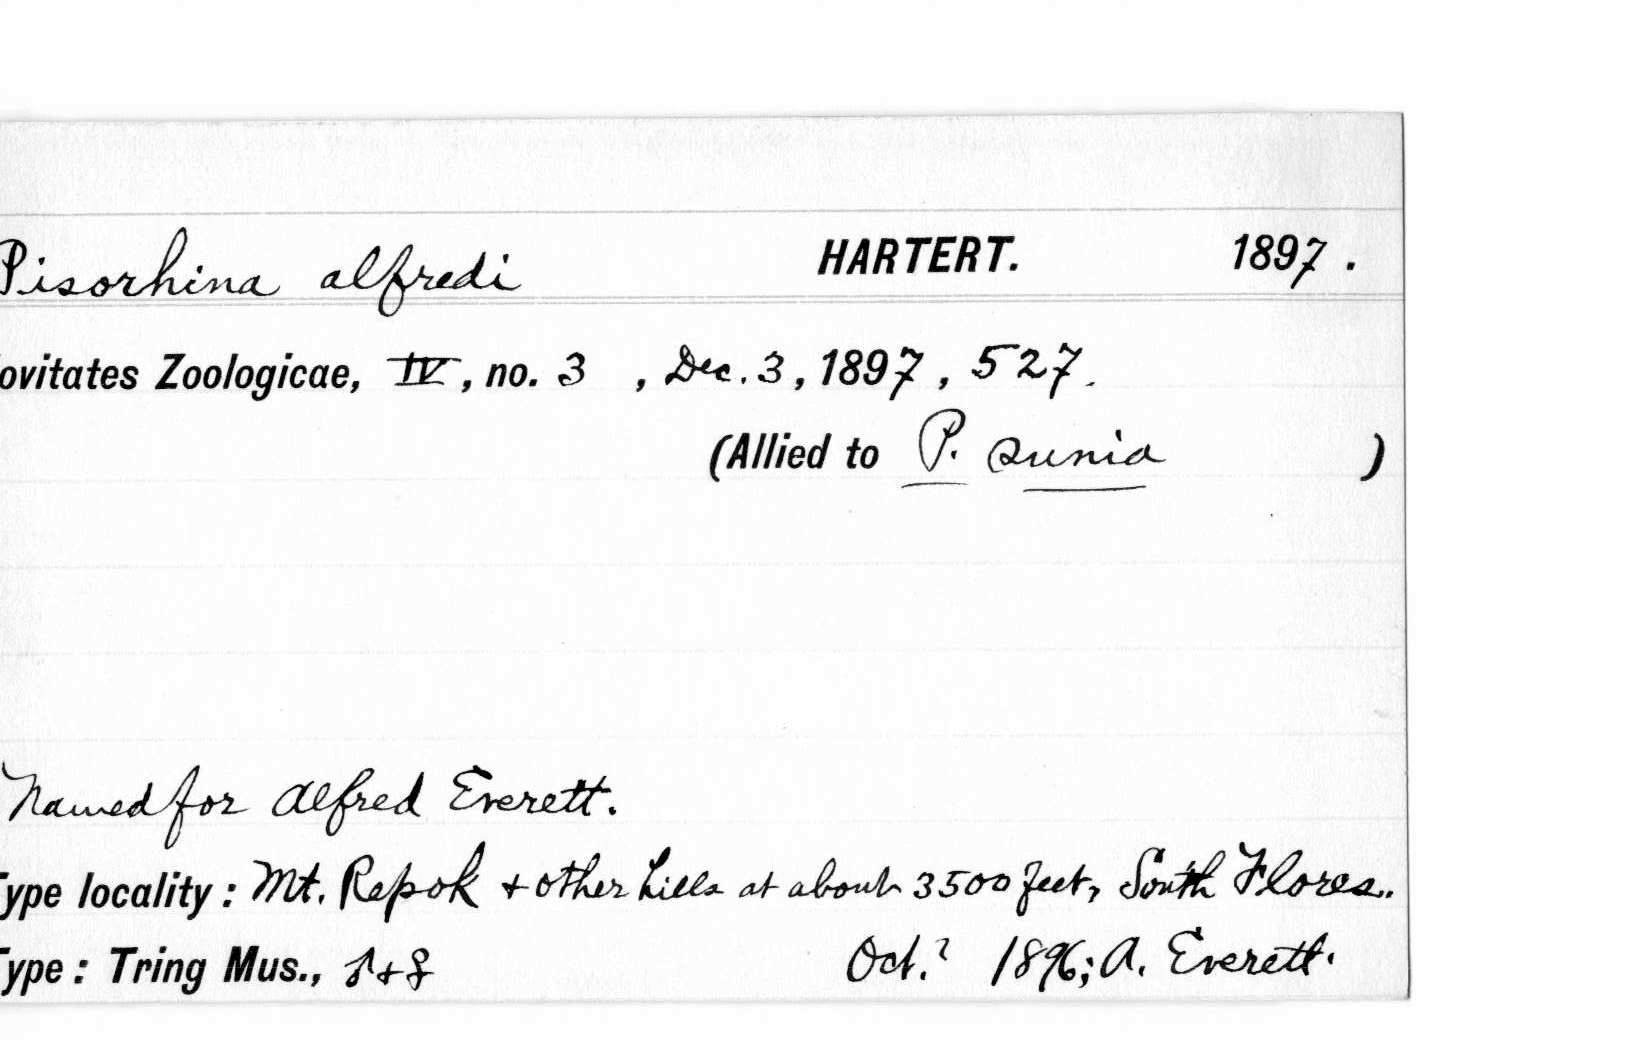 Pisorhina alfredi HARTERT. 1897.
ovitates Zoologicae, IV, no. 3, Dec. 3, 1897, 527.
(Allied to P. sunia )
Named for Alfred Everett.
Type locality: Mt. Repok + other hills at about 3500 feet, South Flores.
Type: Tring Mus., ♂+♀ Oct.? 1896; A. Everett.